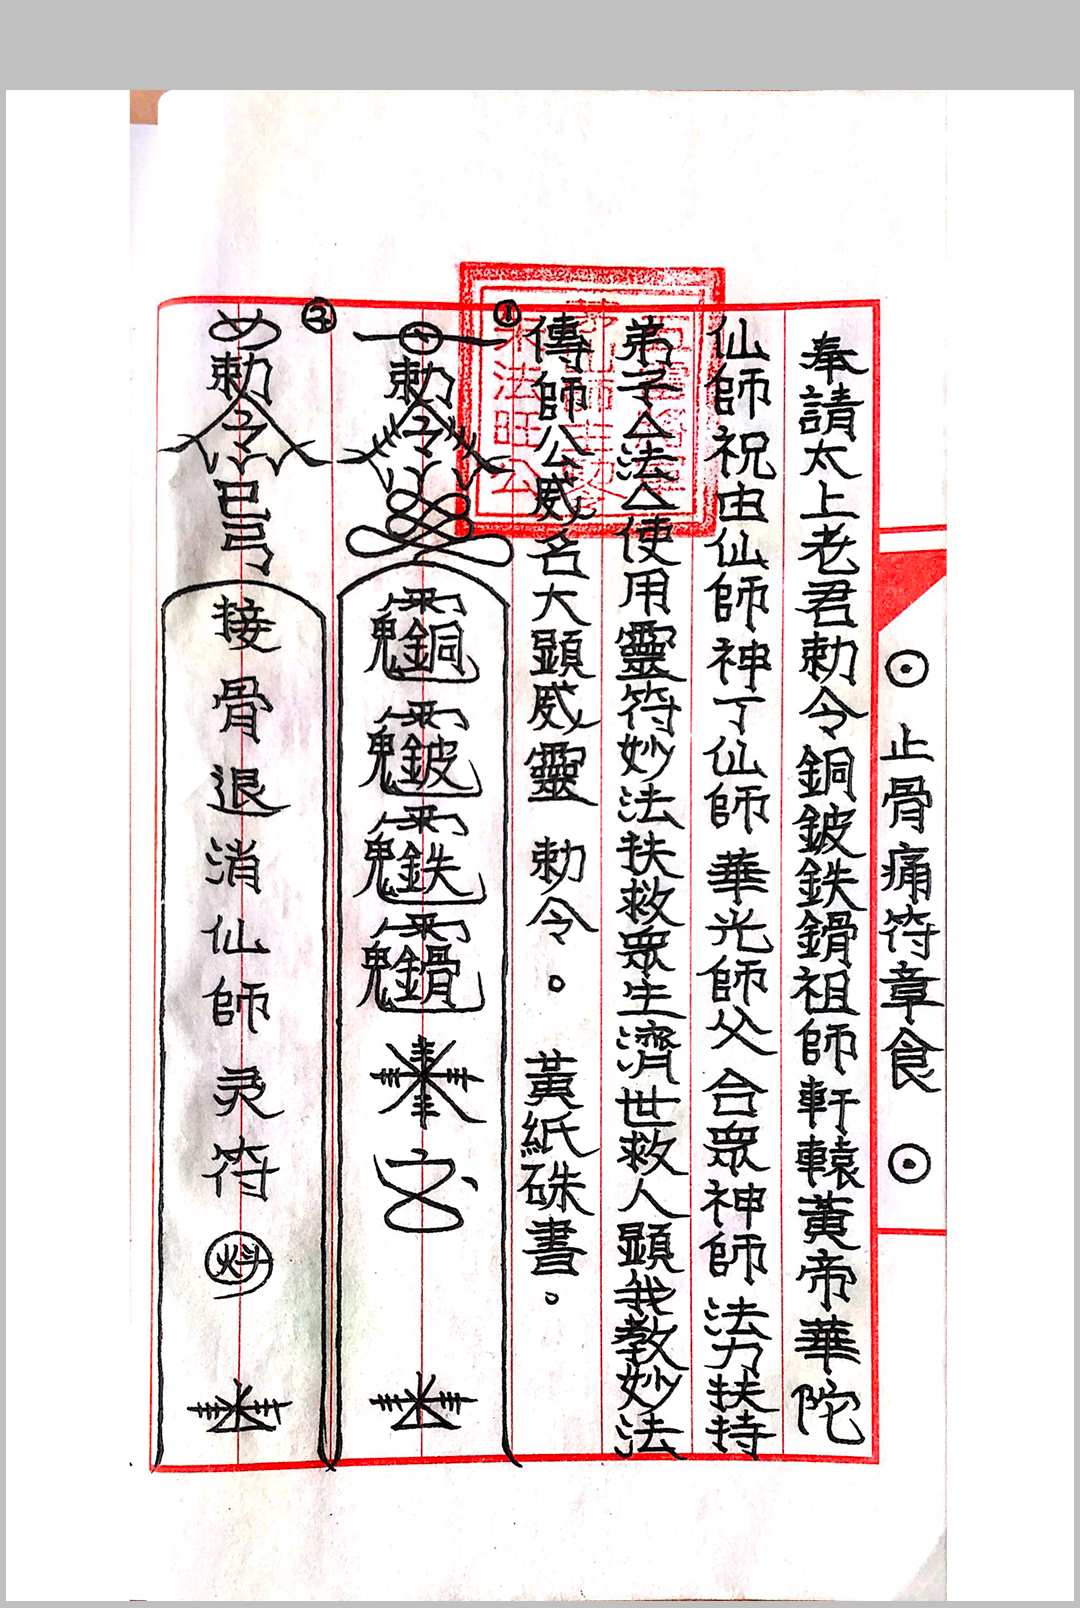 ⊙ 止骨痛符章食 ⊙
奉請太上老君勅令銅鈹鉄鎖祖師軒轅黃帝華陀
仙師祝由仙師神丁仙師華光師父合眾神師法力扶持
弟子厶法厶使用靈符妙法扶救眾生濟世救人顯我教妙法
傳師公威名大顯威靈 勅令。 黃紙硃書。
①
勅令
銅
鈹
鉄
②
勅令
接骨退消仙師灵符